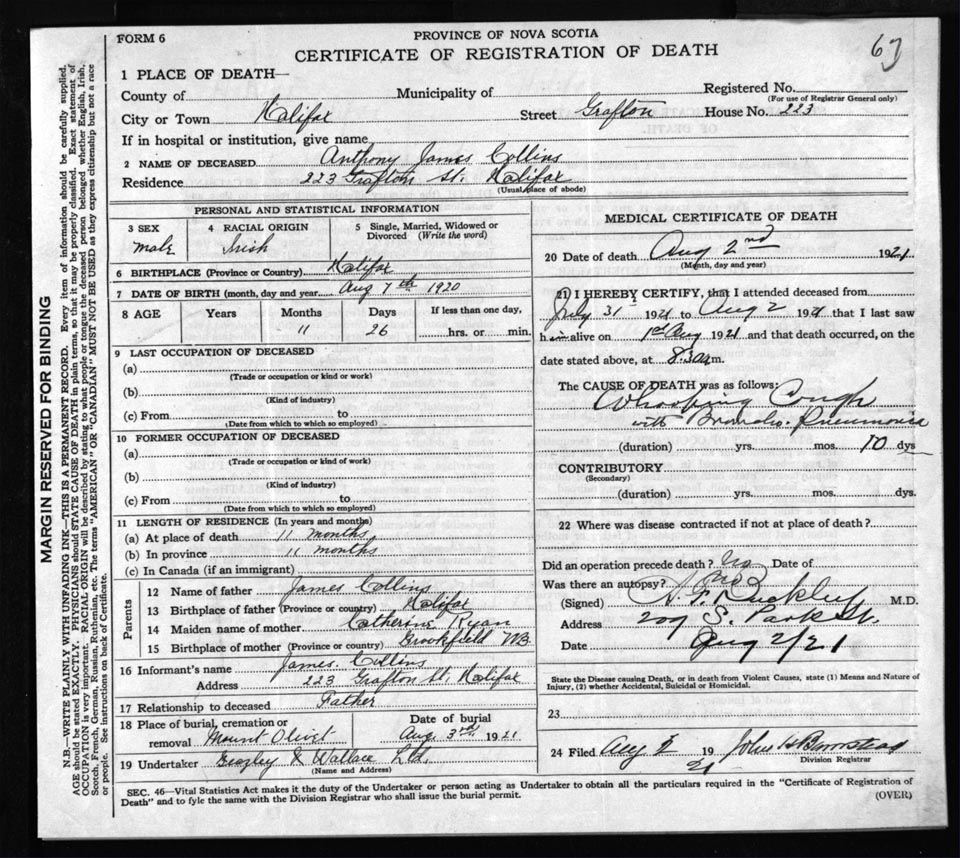 FORM 6
PROVINCE OF NOVA SCOTIA
CERTIFICATE OF REGISTRATION OF DEATH
67
1 PLACE OF DEATH—
County of Municipality of Registered No.
(For use of Registrar General only)
City or Town Halifax Street Grafton House No. 223
If in hospital or institution, give name
2 NAME OF DECEASED Anthony James Collins
Residence 223 Grafton St. Halifax
(Usual place of abode)
PERSONAL AND STATISTICAL INFORMATION
3 SEX male
4 RACIAL ORIGIN Irish
5 Single, Married, Widowed or Divorced (Write the word)
6 BIRTHPLACE (Province or Country) Halifax
7 DATE OF BIRTH (month, day and year Aug 7th 1920
8 AGE Years Months Days If less than one day,
11 26 hrs. or min.
9 LAST OCCUPATION OF DECEASED
(a)
(Trade or occupation or kind or work)
(b)
(Kind of industry)
(c) From to
(Date from which to which so employed)
10 FORMER OCCUPATION OF DECEASED
(a)
(Trade or occupation or kind of work)
(b)
(Kind of industry)
(c) From to
(Date from which to which so employed)
11 LENGTH OF RESIDENCE (In years and months)
(a) At place of death 11 months
(b) In province 11 months
(c) In Canada (if an immigrant)
Parents
12 Name of father James Collins
13 Birthplace of father (Province or country) Halifax
14 Maiden name of mother Catherine Ryan
15 Birthplace of mother (Province or country) Brookfield NB
16 Informant's name James Collins
Address 223 Grafton St. Halifax
17 Relationship to deceased Father
18 Place of burial, cremation or Date of burial
removal Mount Olivet Aug 3rd 1921
19 Undertaker & Wallace Ltd.
(Name and Address)
MEDICAL CERTIFICATE OF DEATH
20 Date of death Aug 2nd 1921
(Month, day and year)
21 I HEREBY CERTIFY, that I attended deceased from
July 31 1921 to Aug 2 1921 that I last saw
him alive on 1st Aug 1921 and that death occurred, on the
date stated above, at 8.30 a m.
The CAUSE OF DEATH was as follows:
Whooping Cough
with Broncho-Pneumonia
(duration) yrs. mos. 10 dys
CONTRIBUTORY
(Secondary)
(duration) yrs. mos. dys.
22 Where was disease contracted if not at place of death?
Did an operation precede death? No Date of
Was there an autopsy? No
(Signed) Buckley M.D.
Address 207 S. Park St.
Date Aug 2/21
State the Disease causing Death, or in death from Violent Causes, state (1) Means and Nature of
Injury, (2) whether Accidental, Suicidal or Homicidal.
23
24 Filed Aug 2 19 21 John H Barnstead
Division Registrar
SEC. 46—Vital Statistics Act makes it the duty of the Undertaker or person acting as Undertaker to obtain all the particulars required in the "Certificate of Registration of
Death" and to fyle the same with the Division Registrar who shall issue the burial permit.
(OVER)
MARGIN RESERVED FOR BINDING
N.B.—WRITE PLAINLY WITH UNFADING INK—THIS IS A PERMANENT RECORD. Every item of information should be carefully supplied.
AGE should be stated EXACTLY. PHYSICIANS should STATE CAUSE OF DEATH in plain terms, so that it may be properly classified. Exact statement of
OCCUPATION is very important. RACIAL ORIGIN will be described by stating to what people or tongue the deceased person belonged whether English, Irish,
Scotch, French, German, Russian, Ruthenian, etc. The terms "AMERICAN" OR "CANADIAN" MUST NOT BE USED as they express citizenship but not a race
or people. See instructions on back of Certificate.